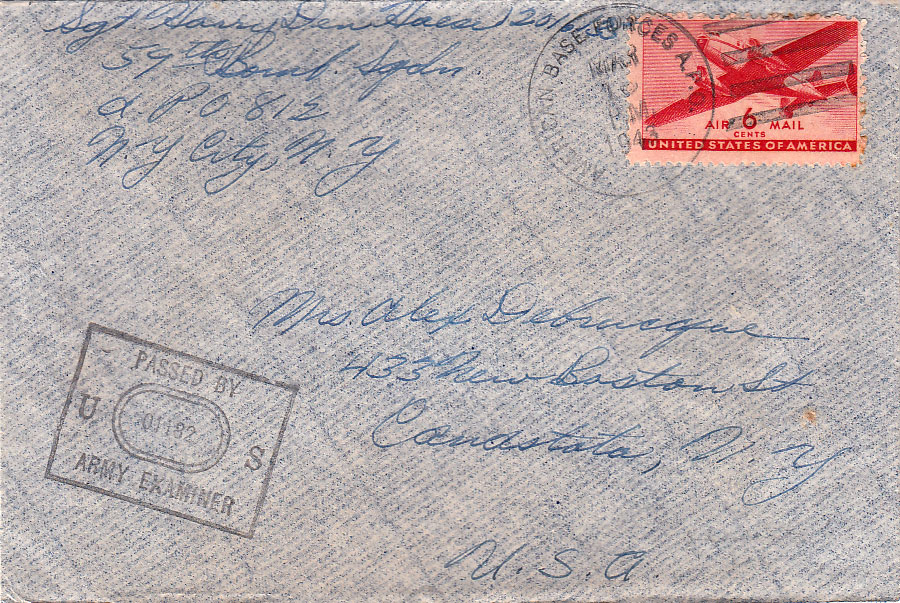 Sgt Harry Den Haese
59th Bomb. Sqdn
A P O 812
N.Y City, N.Y
BASE FORCES A.P.O.
MAR
AIR 6 MAIL
CENTS
UNITED STATES OF AMERICA
Mrs. Alex Debrucque
433 New Boston St.
Canastota, N.Y
U.S.A.
PASSED BY
U 01182 S
ARMY EXAMINER